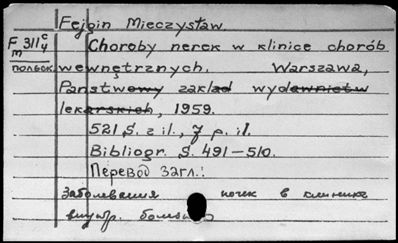 Fejgin Mieczysław.
F 311 c/4
m
польск.
Choroby nerek w klinice chorób
wewnętrznych. Warszawa,
Państwowy zakład wydawnictw
lekarskich, 1959.
521 s. z il., 7 p. il.
Bibliogr. S. 491-510.
Перевод загл.:
Заболевания почек в клинике
внутр. болезней